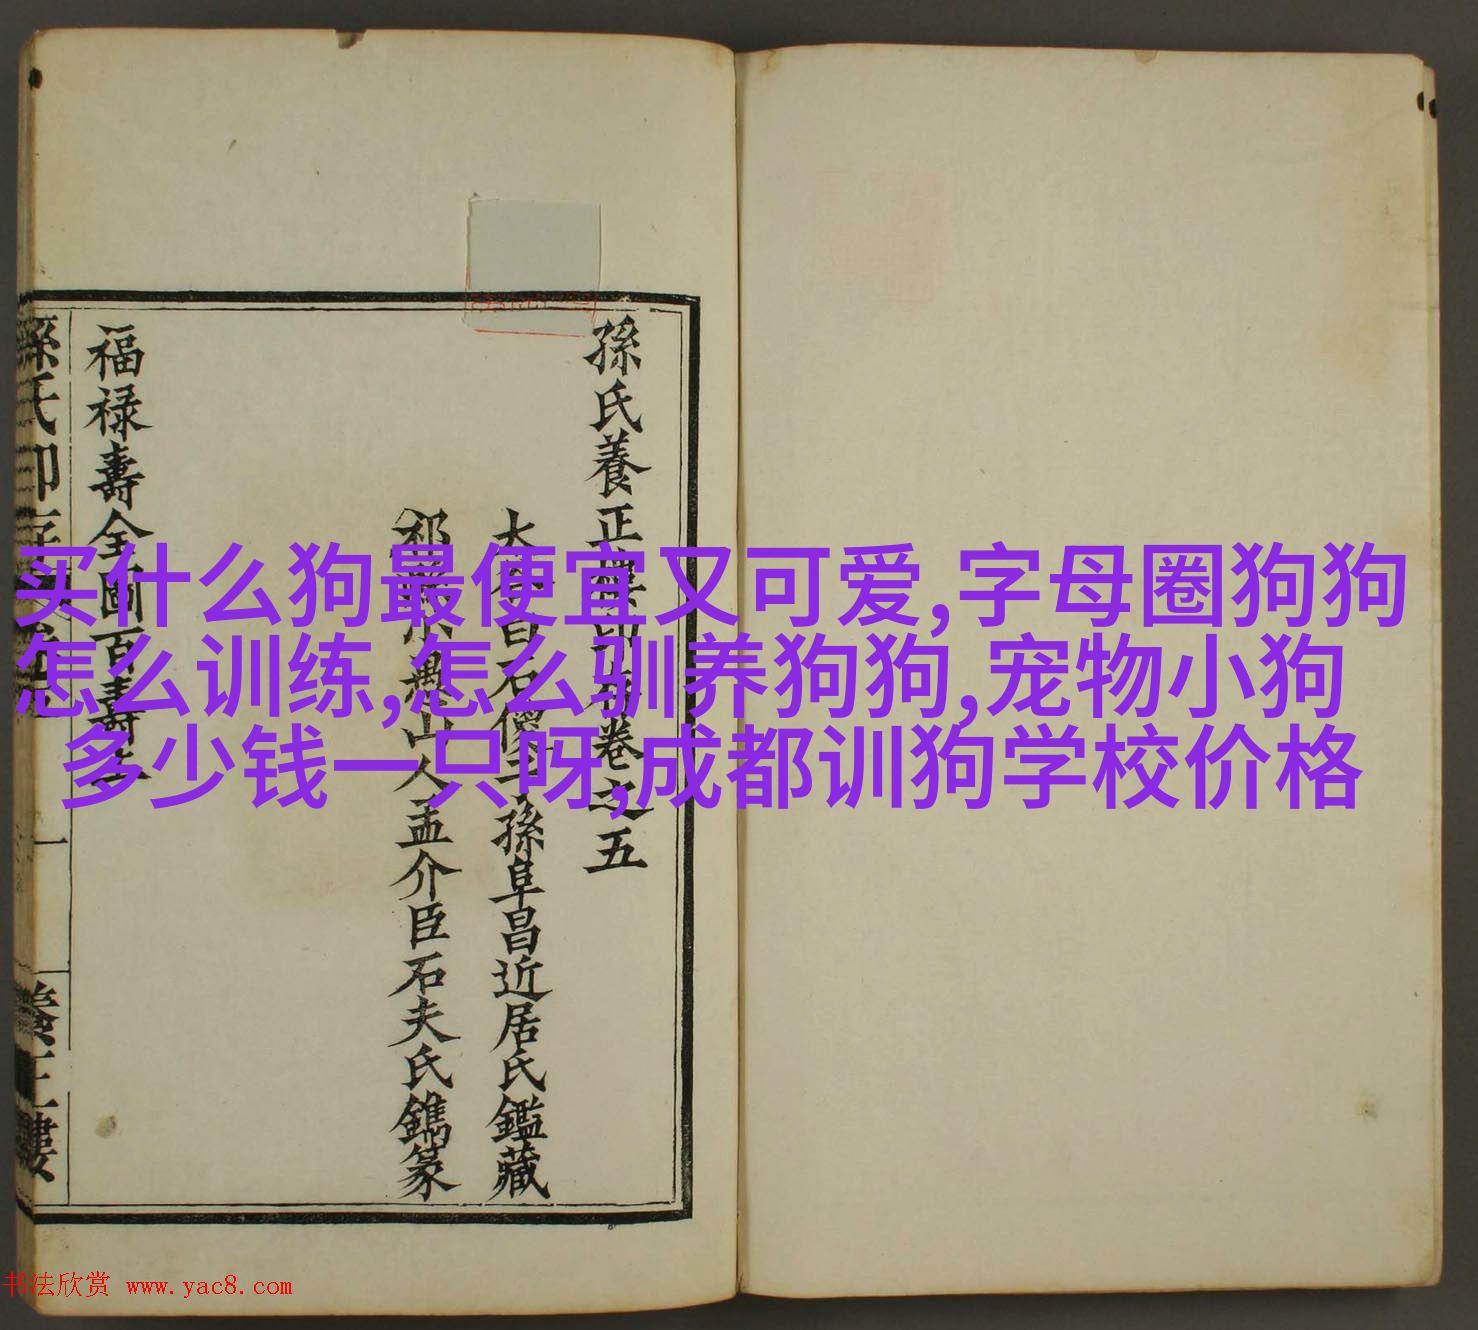 孫氏養正樓印存卷之五
大谷白石儂三孫阜昌近居氏鑑藏
祁縣小愚山人孟介臣石夫氏鐫篆
福祿壽全圖百壽
孫氏印存
養正樓
买什么狗最便宜又可爱,字母圈狗狗
怎么训练,怎么驯养狗狗,宠物小狗
多少钱一只呀,成都训狗学校价格
书法欣赏 www.yac8.com